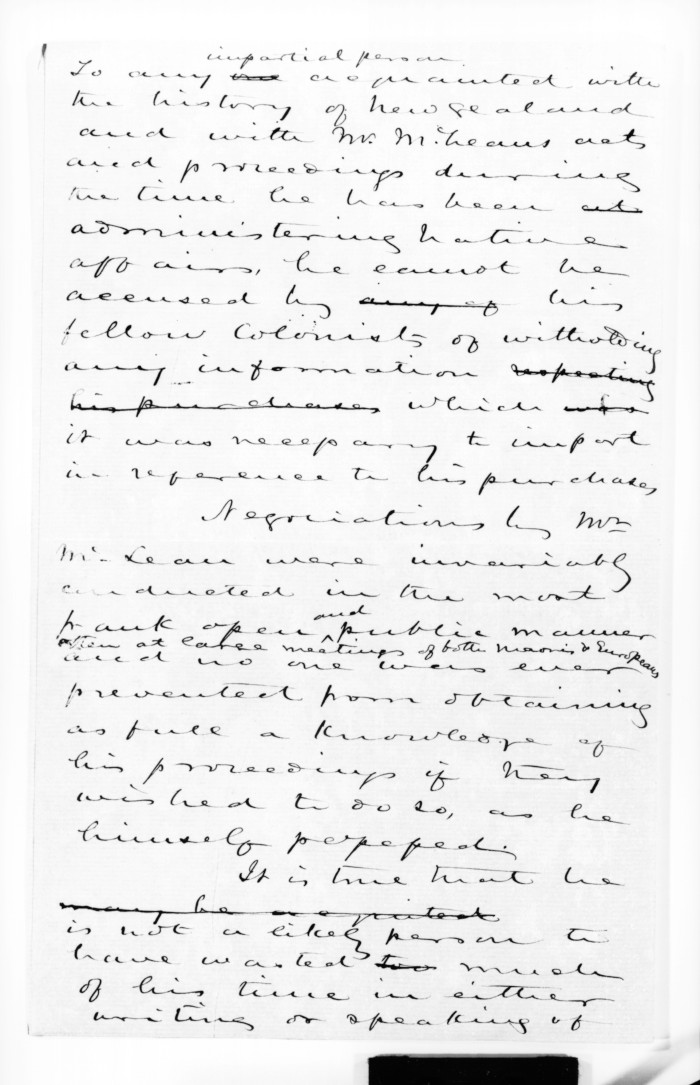 impartial person
To any one acquainted with
the history of New Zealand
and with Mr. McLeans acts
and proceedings during
the time he has been
administering Native
affairs, he cannot be
accused by any of his
fellow Colonists of witholding
any information respecting
his purchases which was
it was necessary to impart
in reference to his purchases
Negociations by Mr
McLean were invariably
conducted in the most
and
frank open public manner
often at large meetings of both Maoris & Europeans
and no one was ever
prevented from obtaining
as full a knowledge of
his proceedings if they
wished to do so, as he
himself possessed.
It is true that he
may be
is not a likely person to
have wasted too much
of his time in either
writing or speaking of